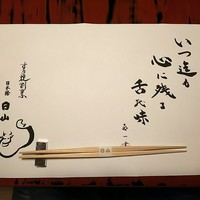 いつ迄も
心に残る
舌の味
すき焼割烹
日本橋
日山
日山